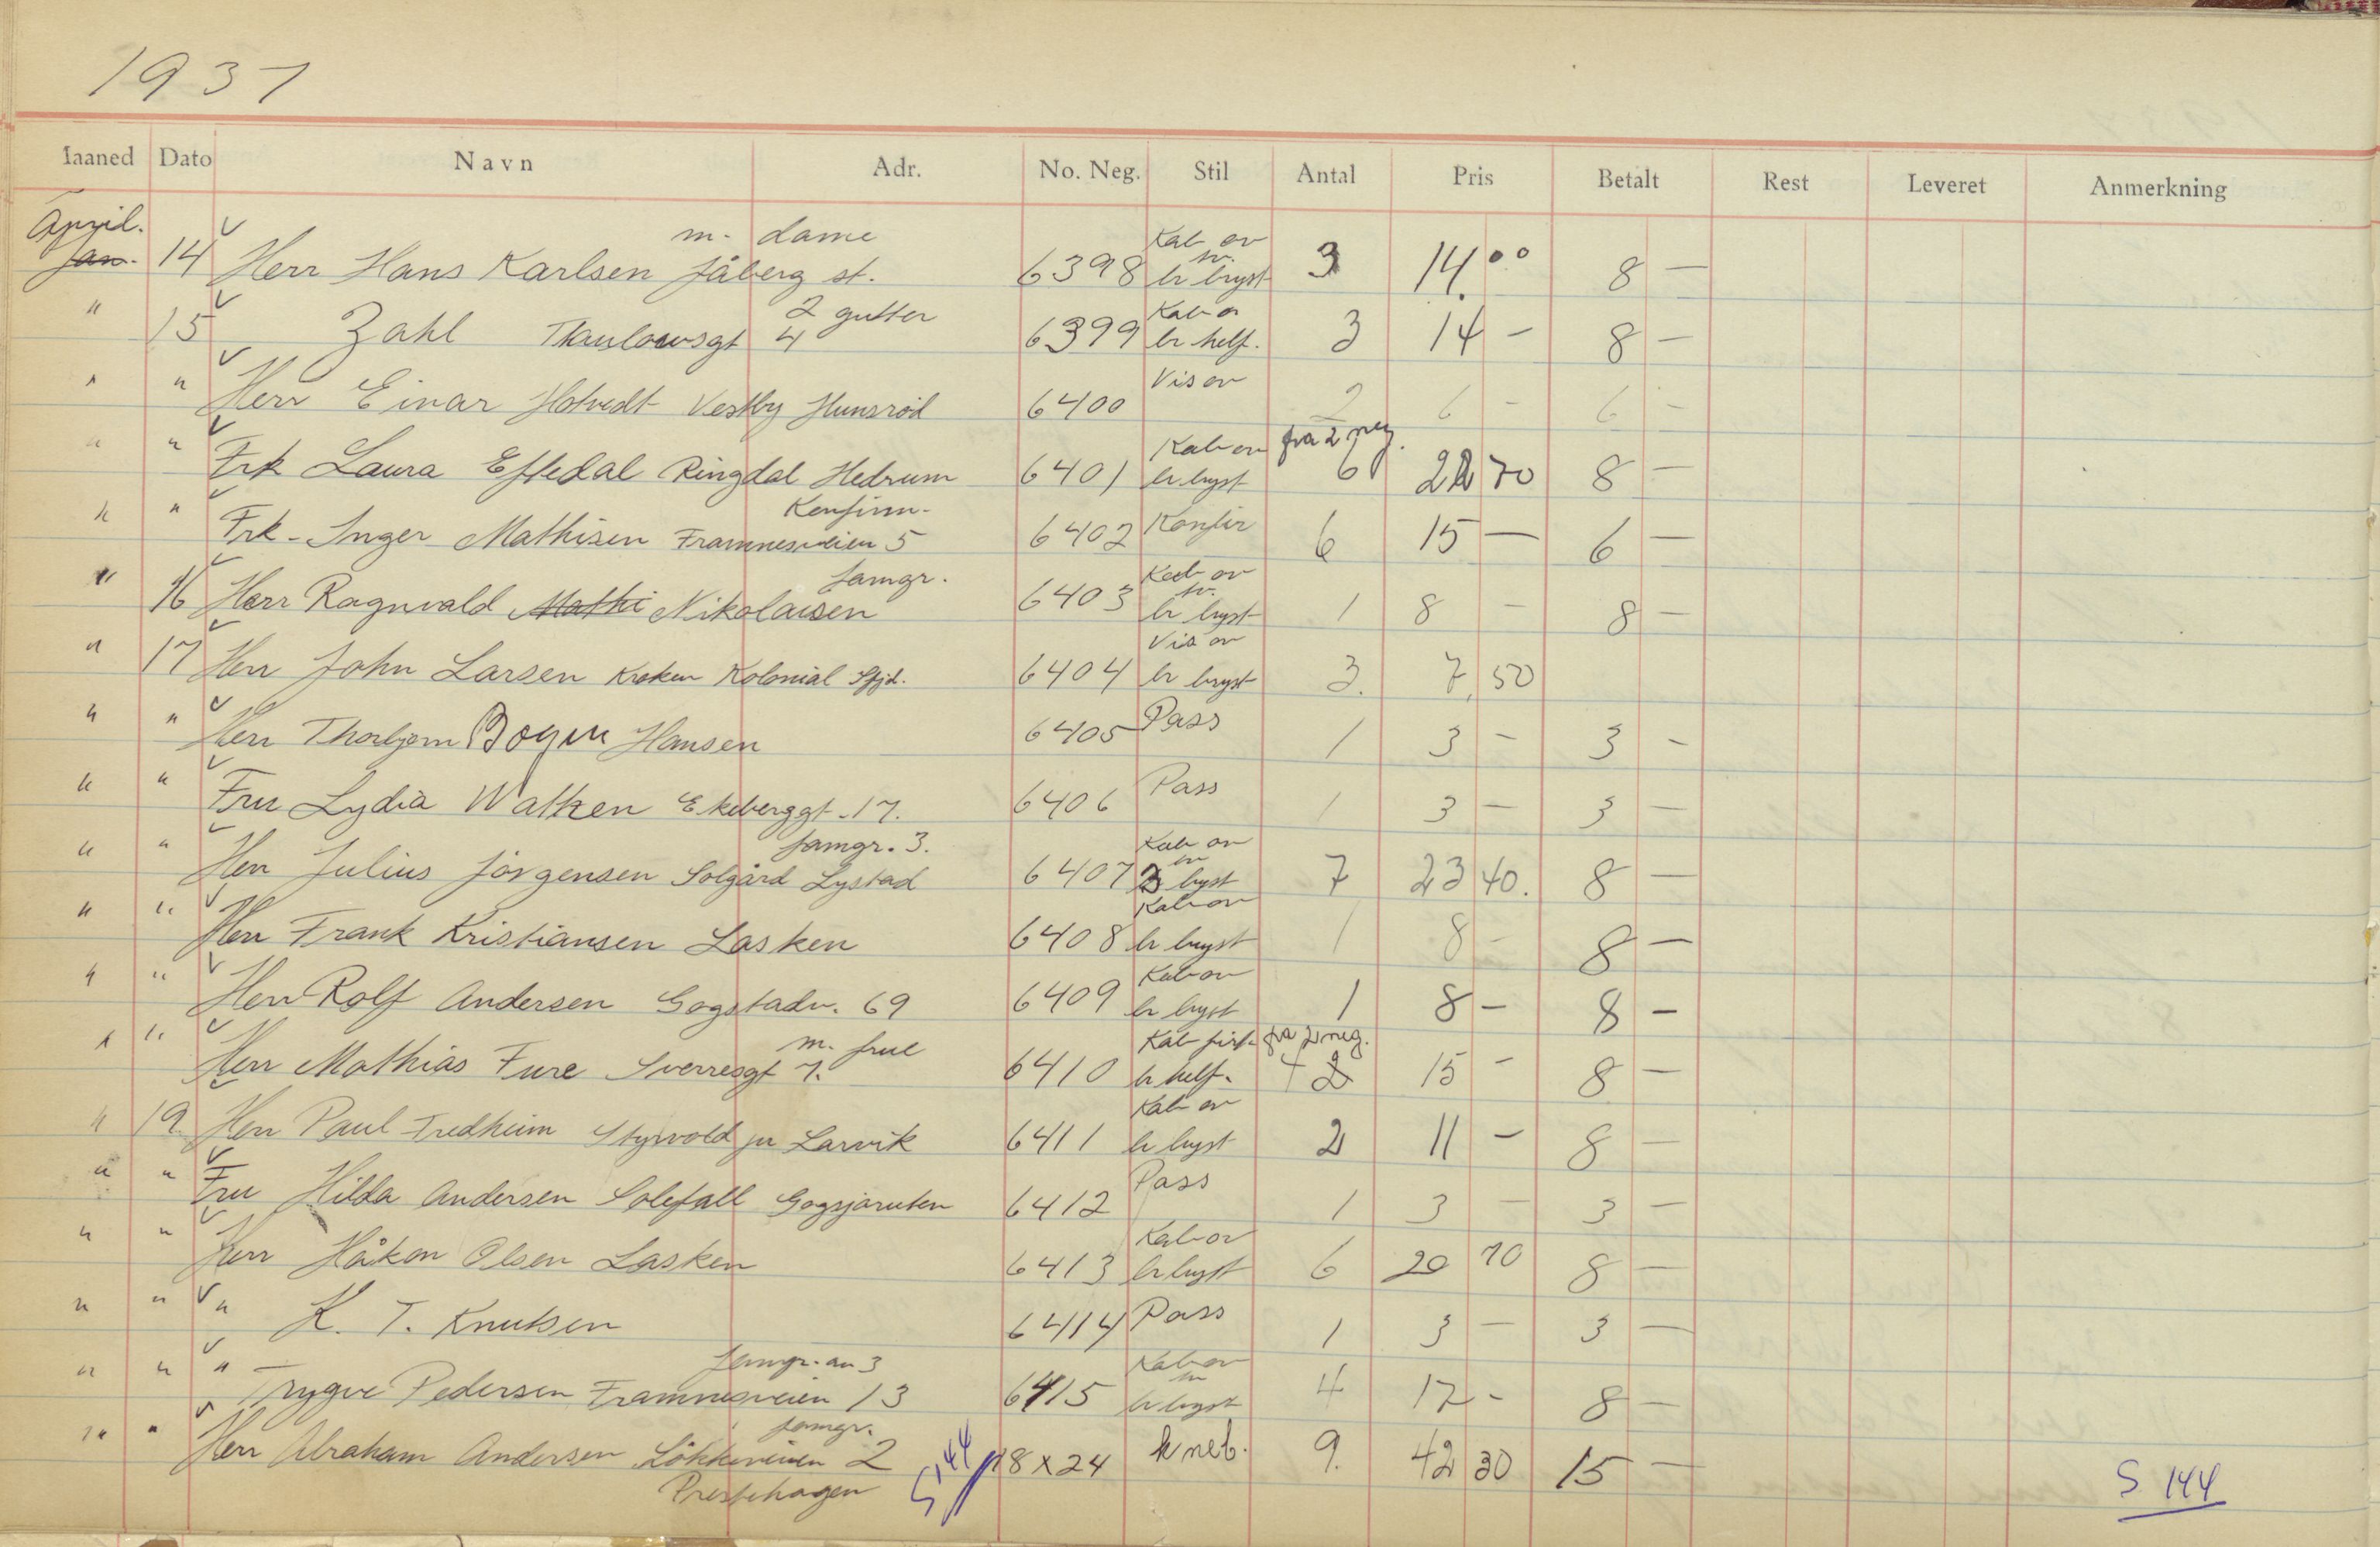 1937
Maaned Dato Navn Adr. No. Neg. Stil Antal Pris Betalt Rest Leveret Anmerkning
April. m. dame Kab ov
Jan. 14 Herr Hans Karlsen Jåberg st. 6398 br bryst 3 14.00 8 —
2 gutter Kab ov
" 15 Zahl Thaulowsgt 4 6399 br helf. 3 14 - 8 —
Vis ov
" " Herr Einar Hotvedt Vestby Hunsrød 6400 2 6 - 6 -
Kab ov fra 2 neg.
" " Frk Laura Eftedal Ringdal Hedrum 6401 br bryst 6 22 70 8 —
Konfirm.
" " Frk. Inger Mathisen Framnesveien 5 6402 Konfir 6 15 — 6 —
famgr. Kab ov
" 16 Herr Ragnvald Mathi Nikolaisen 6403 br bryst 1 8 - 8 —
Vis ov
" 17 Herr John Larsen Kroken Kolonial Sfjd. 6404 br bryst 3. 7,50
" " Herr Thorbjørn Bogen Hansen 6405 Pass 1 3 - 3 -
" " Fru Lydia Watken Ekeberggt. 17. 6406 Pass 1 3 — 3 —
famgr. 3. Kab ov
" " Herr Julius Jörgensen Solgård Lystad 6407 br bryst 7 23 40. 8 —
Kab ov
" " Herr Frank Kristiansen Lasken 6408 br bryst 1 8 - 8 —
Kab ov
" " Herr Rolf Andersen Gogstadv. 69 6409 br bryst 1 8 - 8 -
m. frue Kab firk. fra 2 neg.
" " Herr Mathias Fure Sverresgt 7. 6410 br helf. 2 15 - 8 —
Kab ov
" 19 Herr Paul Fredheim Styrvold pr Larvik 6411 br bryst 2 11 - 8 —
" " Fru Hilda Andersen Solefall Gogsjøruten 6412 Pass 1 3 — 3 —
Kab ov
" " Herr Håkon Olsen Lasken 6413 br bryst 6 20 70 8 —
" " " K. T. Knutsen 6414 Pass 1 3 — 3 —
famgr. av 3 Kab ov
" " " Trygve Pedersen Framnesveien 13 6415 br bryst 4 17 - 8 —
famgr.
" " Herr Abraham Andersen Lökkeveien 2 S 144 18 x 24 k neb. 9. 42 30 15 —
Prestehagen
S 144